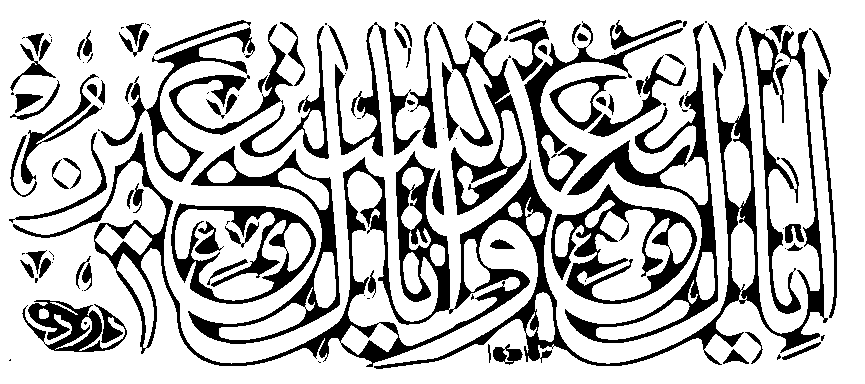 إياك نعبد وإياك نستعين